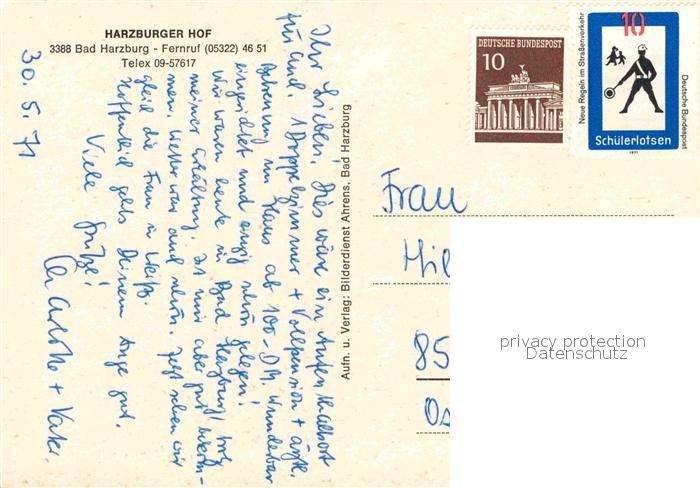 HARZBURGER HOF
3388 Bad Harzburg - Fernruf (05322) 46 51
Telex 09-57617
30. 5. 71
Ihr Lieben! Dies wäre ein Aufenthaltsort
für uns! 1 Doppelzimmer + Vollpension + ärztl.
Betreuung im Haus ab 100,- DM. Wunderbar
eingerichtet und ruhig schön gelegen!
Wir waren heute in Bad Harzburg trotz
meiner Erkältung. Ist mir aber gut bekom-
men. Wetter war auch schön. Jetzt sehen wir
gleich die Frau in Weiß.
Hoffentlich geht's Deinem Auge gut.
Viele Grüße!
Charlotte + Vater.
Aufn. u. Verlag: Bilderdienst Ahrens, Bad Harzburg
DEUTSCHE BUNDESPOST
10
Neue Regeln im Straßenverkehr
10
Schülerlotsen
1971
Deutsche Bundespost
Frau
Hil
85
Os
privacy protection
Datenschutz